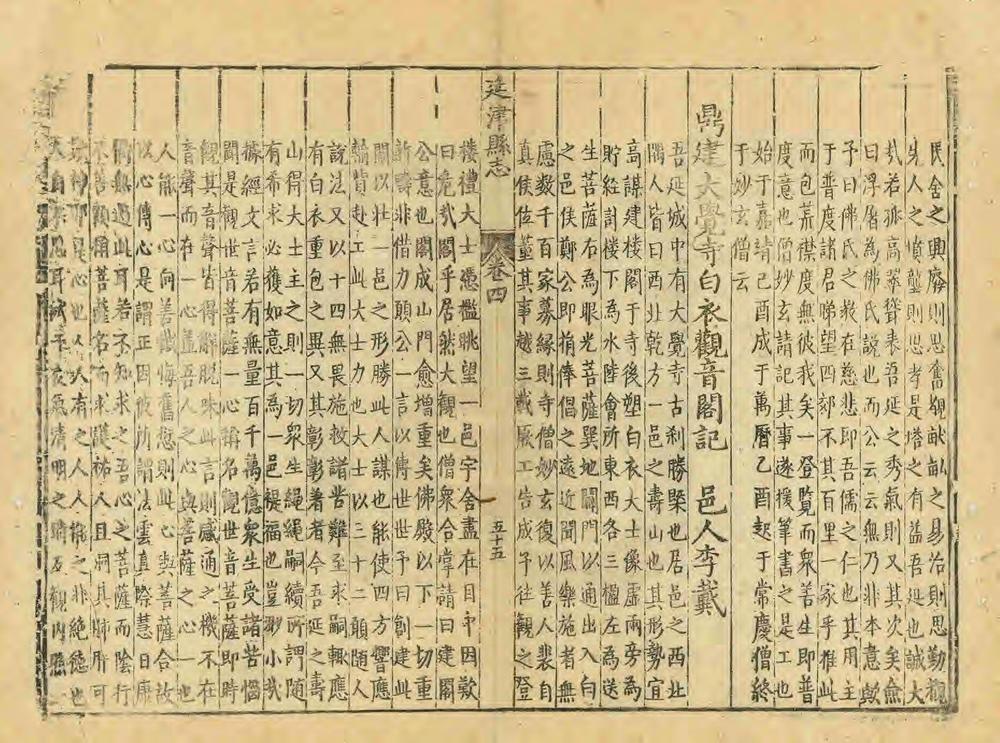 民舍之興廢則思奮覩畎畝之易治則思勤觀
先人之墳壟則思孝是塔之有益吾延也誠大
矣若孤高萃聳表吾延之秀氣則又其次矣僉
曰浮屠為佛氏說也而公云云無乃非本意歟
予曰佛氏之教在慈悲即吾儒之仁也其用主
于普度諸君睇望四郊不其百里一家乎推此
而包荒襟度無彼我矣一登覽而衆善生即普
度意也僧妙玄請記其事遂援筆書之是工也
始于嘉靖己酉成于萬曆乙酉起于常慶僧終
于妙玄僧云
鼎建大覺寺白衣觀音閣記 邑人李戴
吾延城中有大覺寺古剎勝槩也居邑之西北
隅人皆曰西北乾方一邑之壽山也其形勢宜
高謀建楼閣于寺後塑白衣大士像虛兩旁為
貯經討楼下為水陸會所東西各三楹左為送
生菩薩右為眼光菩薩巽地闢門以通出入白
之邑侯鄭公即捐俸倡之遠近聞風樂施者無
慮数千百家募縁則寺僧妙玄復以善人裴自
真侯位董其事越三載厥工告成予往觀之登
延津縣志
卷四
五十五
楼禮大士憑檻眺望一邑宇舍盡在目中因歎
曰危哉閣乎居然大觀也僧衆合掌請曰建閣
公意也閣成山門愈增重矣佛殿以下一切重
新疇非借力願公一言以傳世世予曰創建此
閣以壯一邑之形勝此人謀也能使四方響應
輸貲赴工此大士力也大士以三十二相隨人
說法又以十四無畏施救諸苦難至求嗣輙應
有白衣重包之異又其彰彰著者今吾延之壽
山得大士主之則一切衆生繩繩嗣續所謂隨
有希求必獲如意其為一邑禔福也豈渺小哉
據經文言若有無量百千萬億衆生受諸苦惱
聞是觀世音菩薩一心稱名觀世音菩薩即時
觀其音聲皆得解脱味此言則感通之機不在
音聲而在一心盖吾人之心與菩薩之心一也
人能一心向善懺悔舊愆則此心與菩薩合故
以心傳心是謂正因彼所謂法雲真際慧日康
衢無過此耳若不知求之吾心之菩薩而陰行
不善顧稱菩薩名而求護祐人且洞其肺肝可
欺神耶是心也人人有之人人能之非絶德也